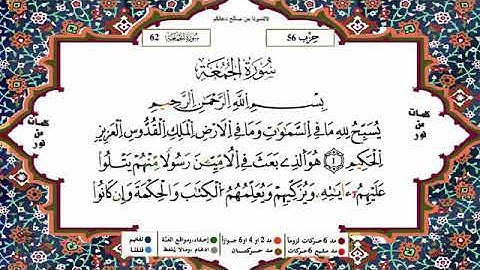 لاتنسونا من صالح دعائكم
حزب 56
سورة الجمعة 62
سُورَةُ الجُمُعَةِ
بِسْمِ اللَّهِ الرَّحْمَٰنِ الرَّحِيمِ
يُسَبِّحُ لِلهِ مَا فِي السَّمَٰوَٰتِ وَمَا فِي الْأَرْضِ الْمَلِكِ الْقُدُّوسِ الْعَزِيزِ
الْحَكِيمِ ١ هُوَ الَّذِي بَعَثَ فِي الْأُمِّيِّينَ رَسُولًا مِّنْهُمْ يَتْلُوا
عَلَيْهِمْ ءَايَٰتِهِ وَيُزَكِّيهِمْ وَيُعَلِّمُهُمُ الْكِتَٰبَ وَالْحِكْمَةَ وَإِن كَانُوا
كلمات من نور
كلمات من نور
مد 6 حركات لزوما
مد 2 او 4 او 6 جوازا
إخفاء، ومواقع الغنة
تفخيم
مد مشبع 6 حركات
مد حركتان
ادغام، ومالا يلفظ
قلقلة